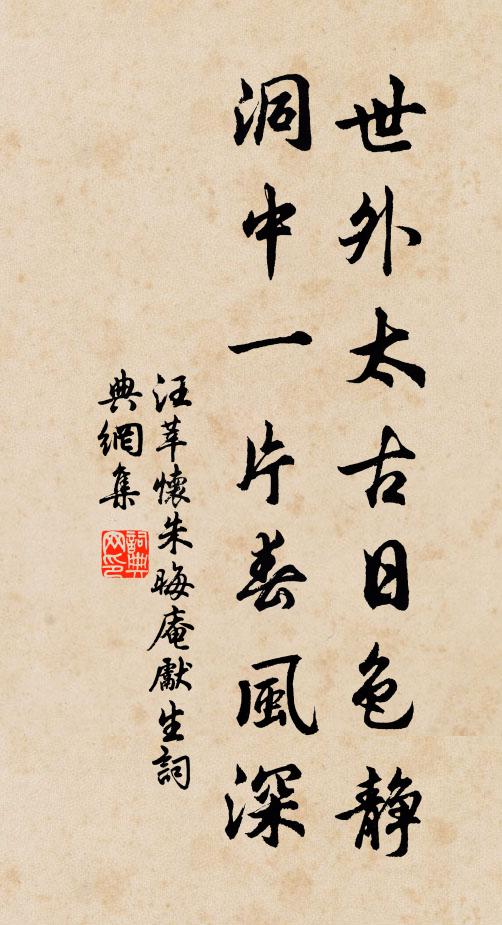 世外太古日色静
洞中一片春風深
汪莘懷朱晦庵獻生詞
典網集
詞典
网印